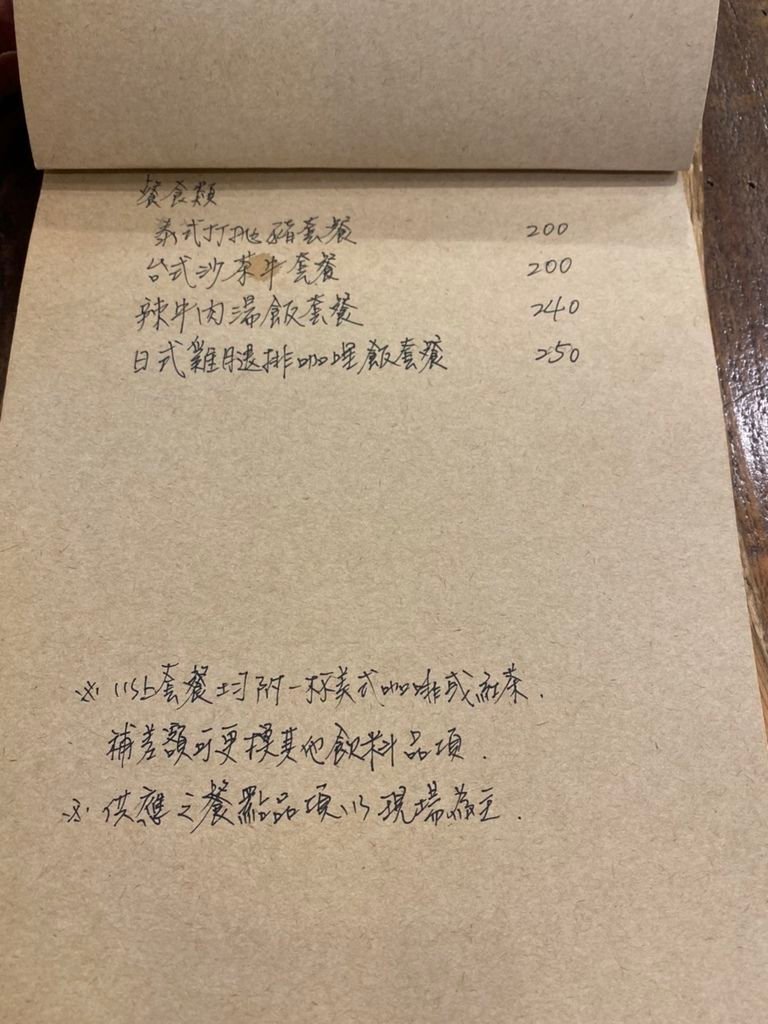 餐食類
泰式打拋豬套餐 200
台式沙茶牛套餐 200
辣牛肉湯飯套餐 240
日式雞腿排咖哩飯套餐 250
※ 以上套餐均附一杯美式咖啡或紅茶.
補差額可更換其他飲料品項.
※ 供應之餐點品項以現場為主.